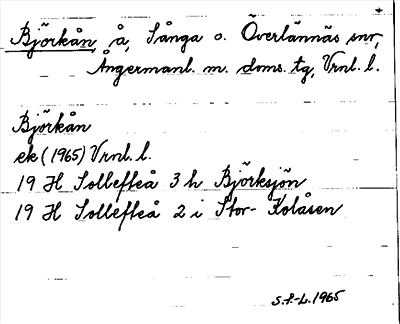 Björkån, å, Sånga o. Överlännäs snr,
Ångermanl. m. doms. tg, Vrnl. l.
Björkån
ek (1965) Vrnl. l.
19 H Sollefteå 3 h Björksjön
19 H Sollefteå 2 i Stor-Kolåsen
S.F.-L. 1965